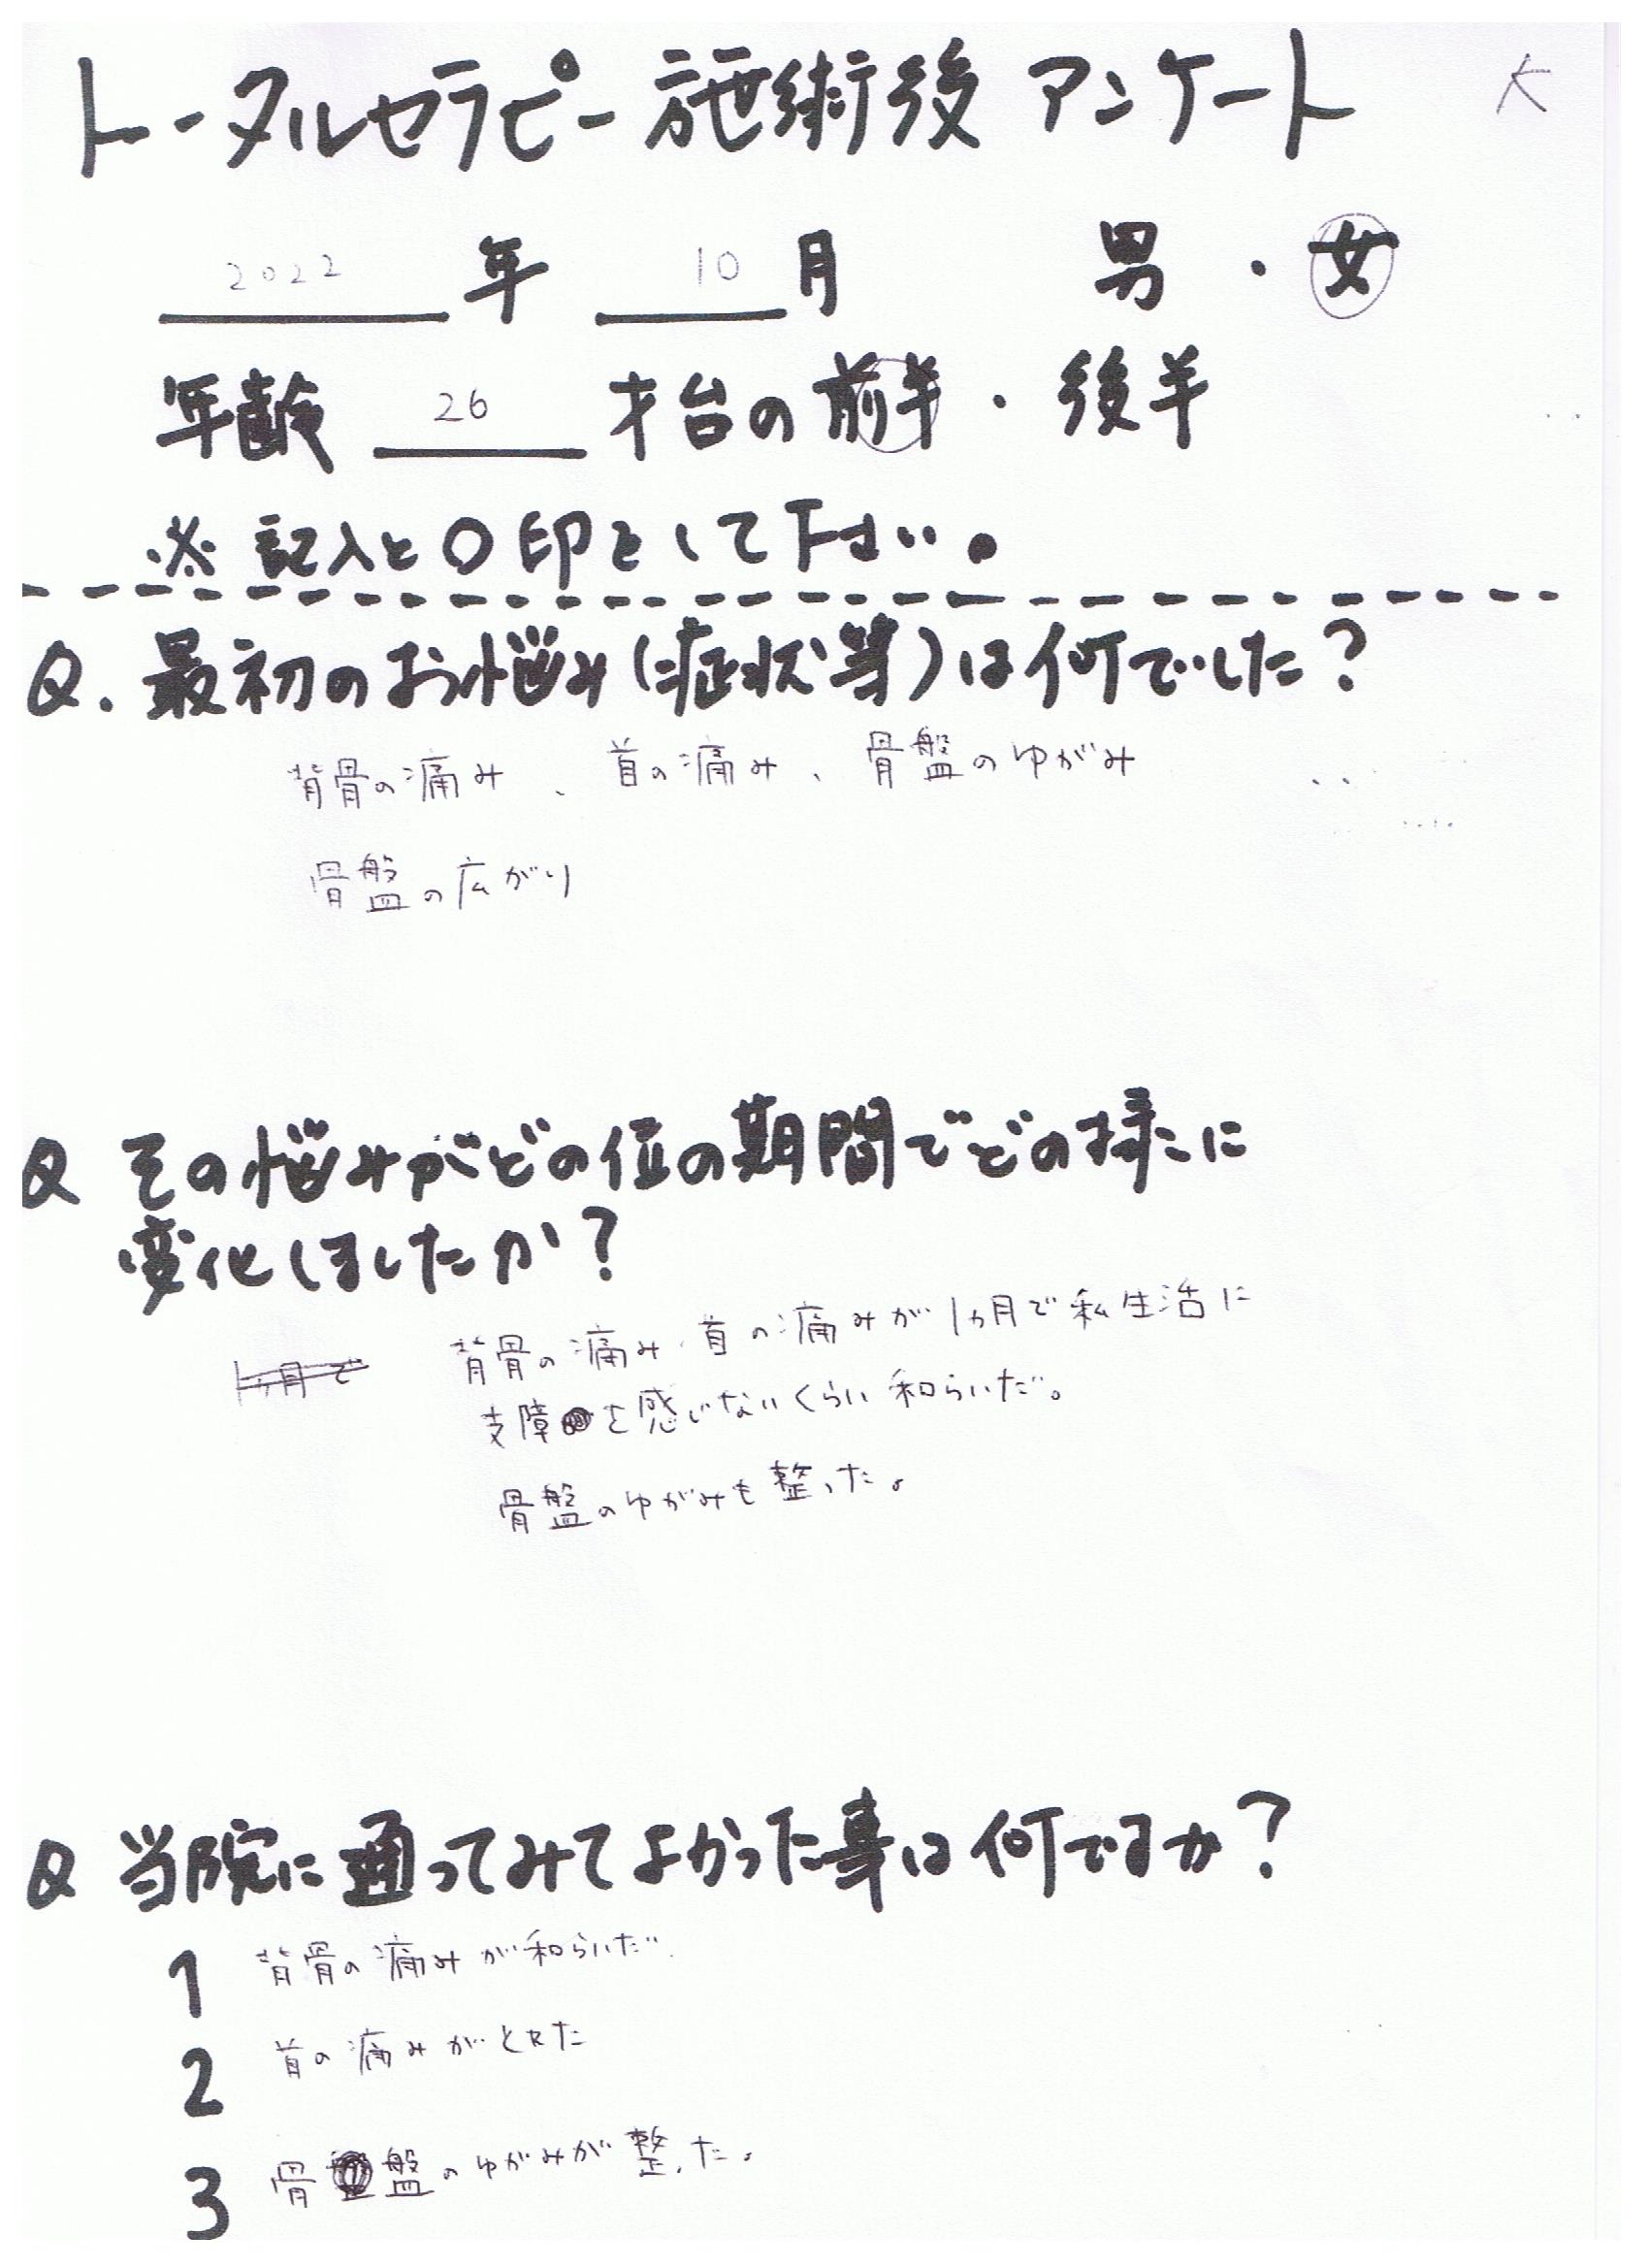 トータルセラピー施術後 アンケート K
2022 年 10 月 男 ・ 女
年齢 26 才台の 前半 ・ 後半
※ 記入と○印をして下さい。
Q. 最初のお悩み(症状等)は何でした?
背骨の痛み 、 首の痛み 、 骨盤のゆがみ
骨盤の広がり
Q その悩みがどの位の期間でどの様に
変化しましたか?
1ヵ月で 背骨の痛み、首の痛みが1ヵ月で私生活に
支障を感じないくらい和らいだ。
骨盤のゆがみも整った。
Q 当院に通ってみてよかった事は何ですか?
1 背骨の痛みが和らいだ
2 首の痛みがとれた
3 骨盤のゆがみが整った。